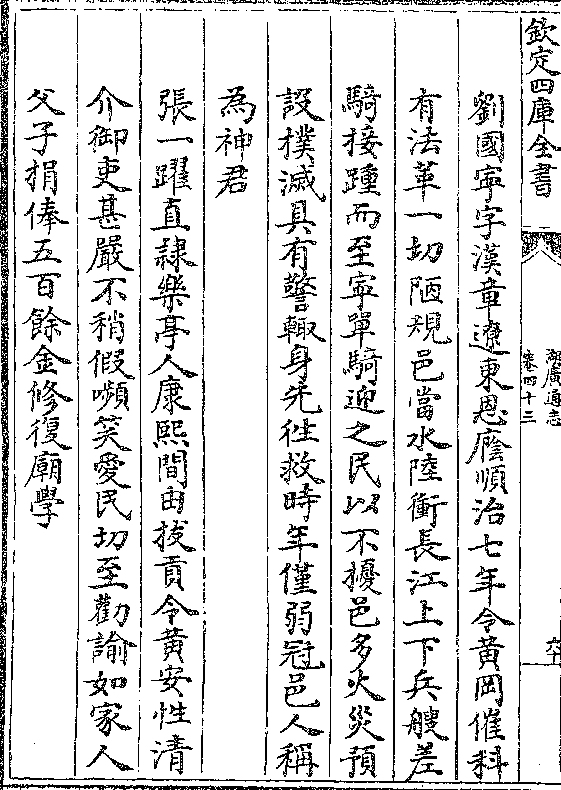 欽定四庫全書
湖廣通志
卷四十三
劉國寧字漢章遼東恩廕順治七年令黄岡催科
有法革一切陋規邑當水陸衝長江上下兵艘差
騎接踵而至寧單騎迎之民以不擾邑多火災預
設撲滅具有警輙身先徃救時年僅弱冠邑人稱
為神君
張一躍直隷樂亭人康熙間由拔貢令黄安性清
介御吏甚嚴不稍假嚬笑愛民切至勸諭如家人
父子捐俸五百餘金修復廟學